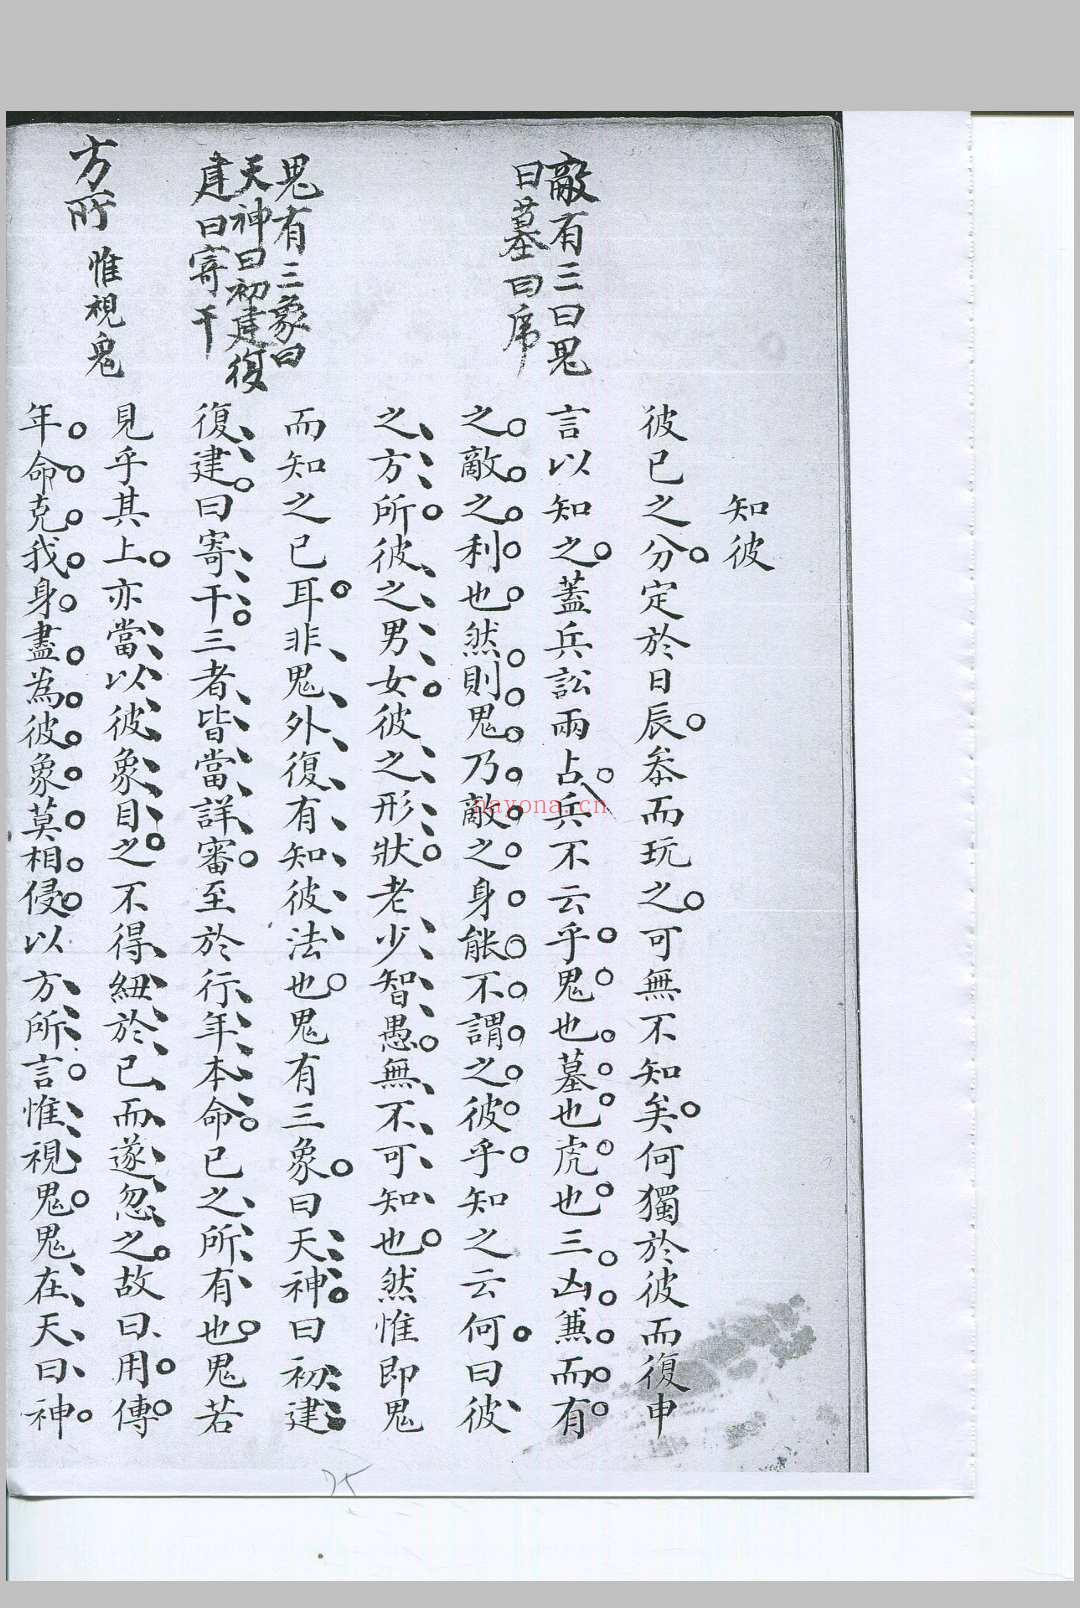 知彼
彼已之分定於日辰叅而玩之可無不知矣何獨於彼而復申
敵有三曰鬼
曰墓曰席
言以知之蓋兵訟兩占兵不云乎鬼也墓也虎也三凶兼而有
之敵之利也然則鬼乃敵之身能不謂之彼乎知之云何曰彼
之方所彼之男女彼之形狀老少智愚無不可知也然惟即鬼
鬼有三象曰
天神曰初建復
建曰寄干
而知之已耳非鬼外復有知彼法也鬼有三象曰天神曰初建
復建曰寄干三者皆當詳審至於行年本命已之所有也鬼若
方所 惟視鬼
見乎其上亦當以彼象目之不得紐於已而遂忽之故曰用傳
年命克我身盡為彼象莫相侵以方所言惟視鬼鬼在天曰神
nayona.cn
25